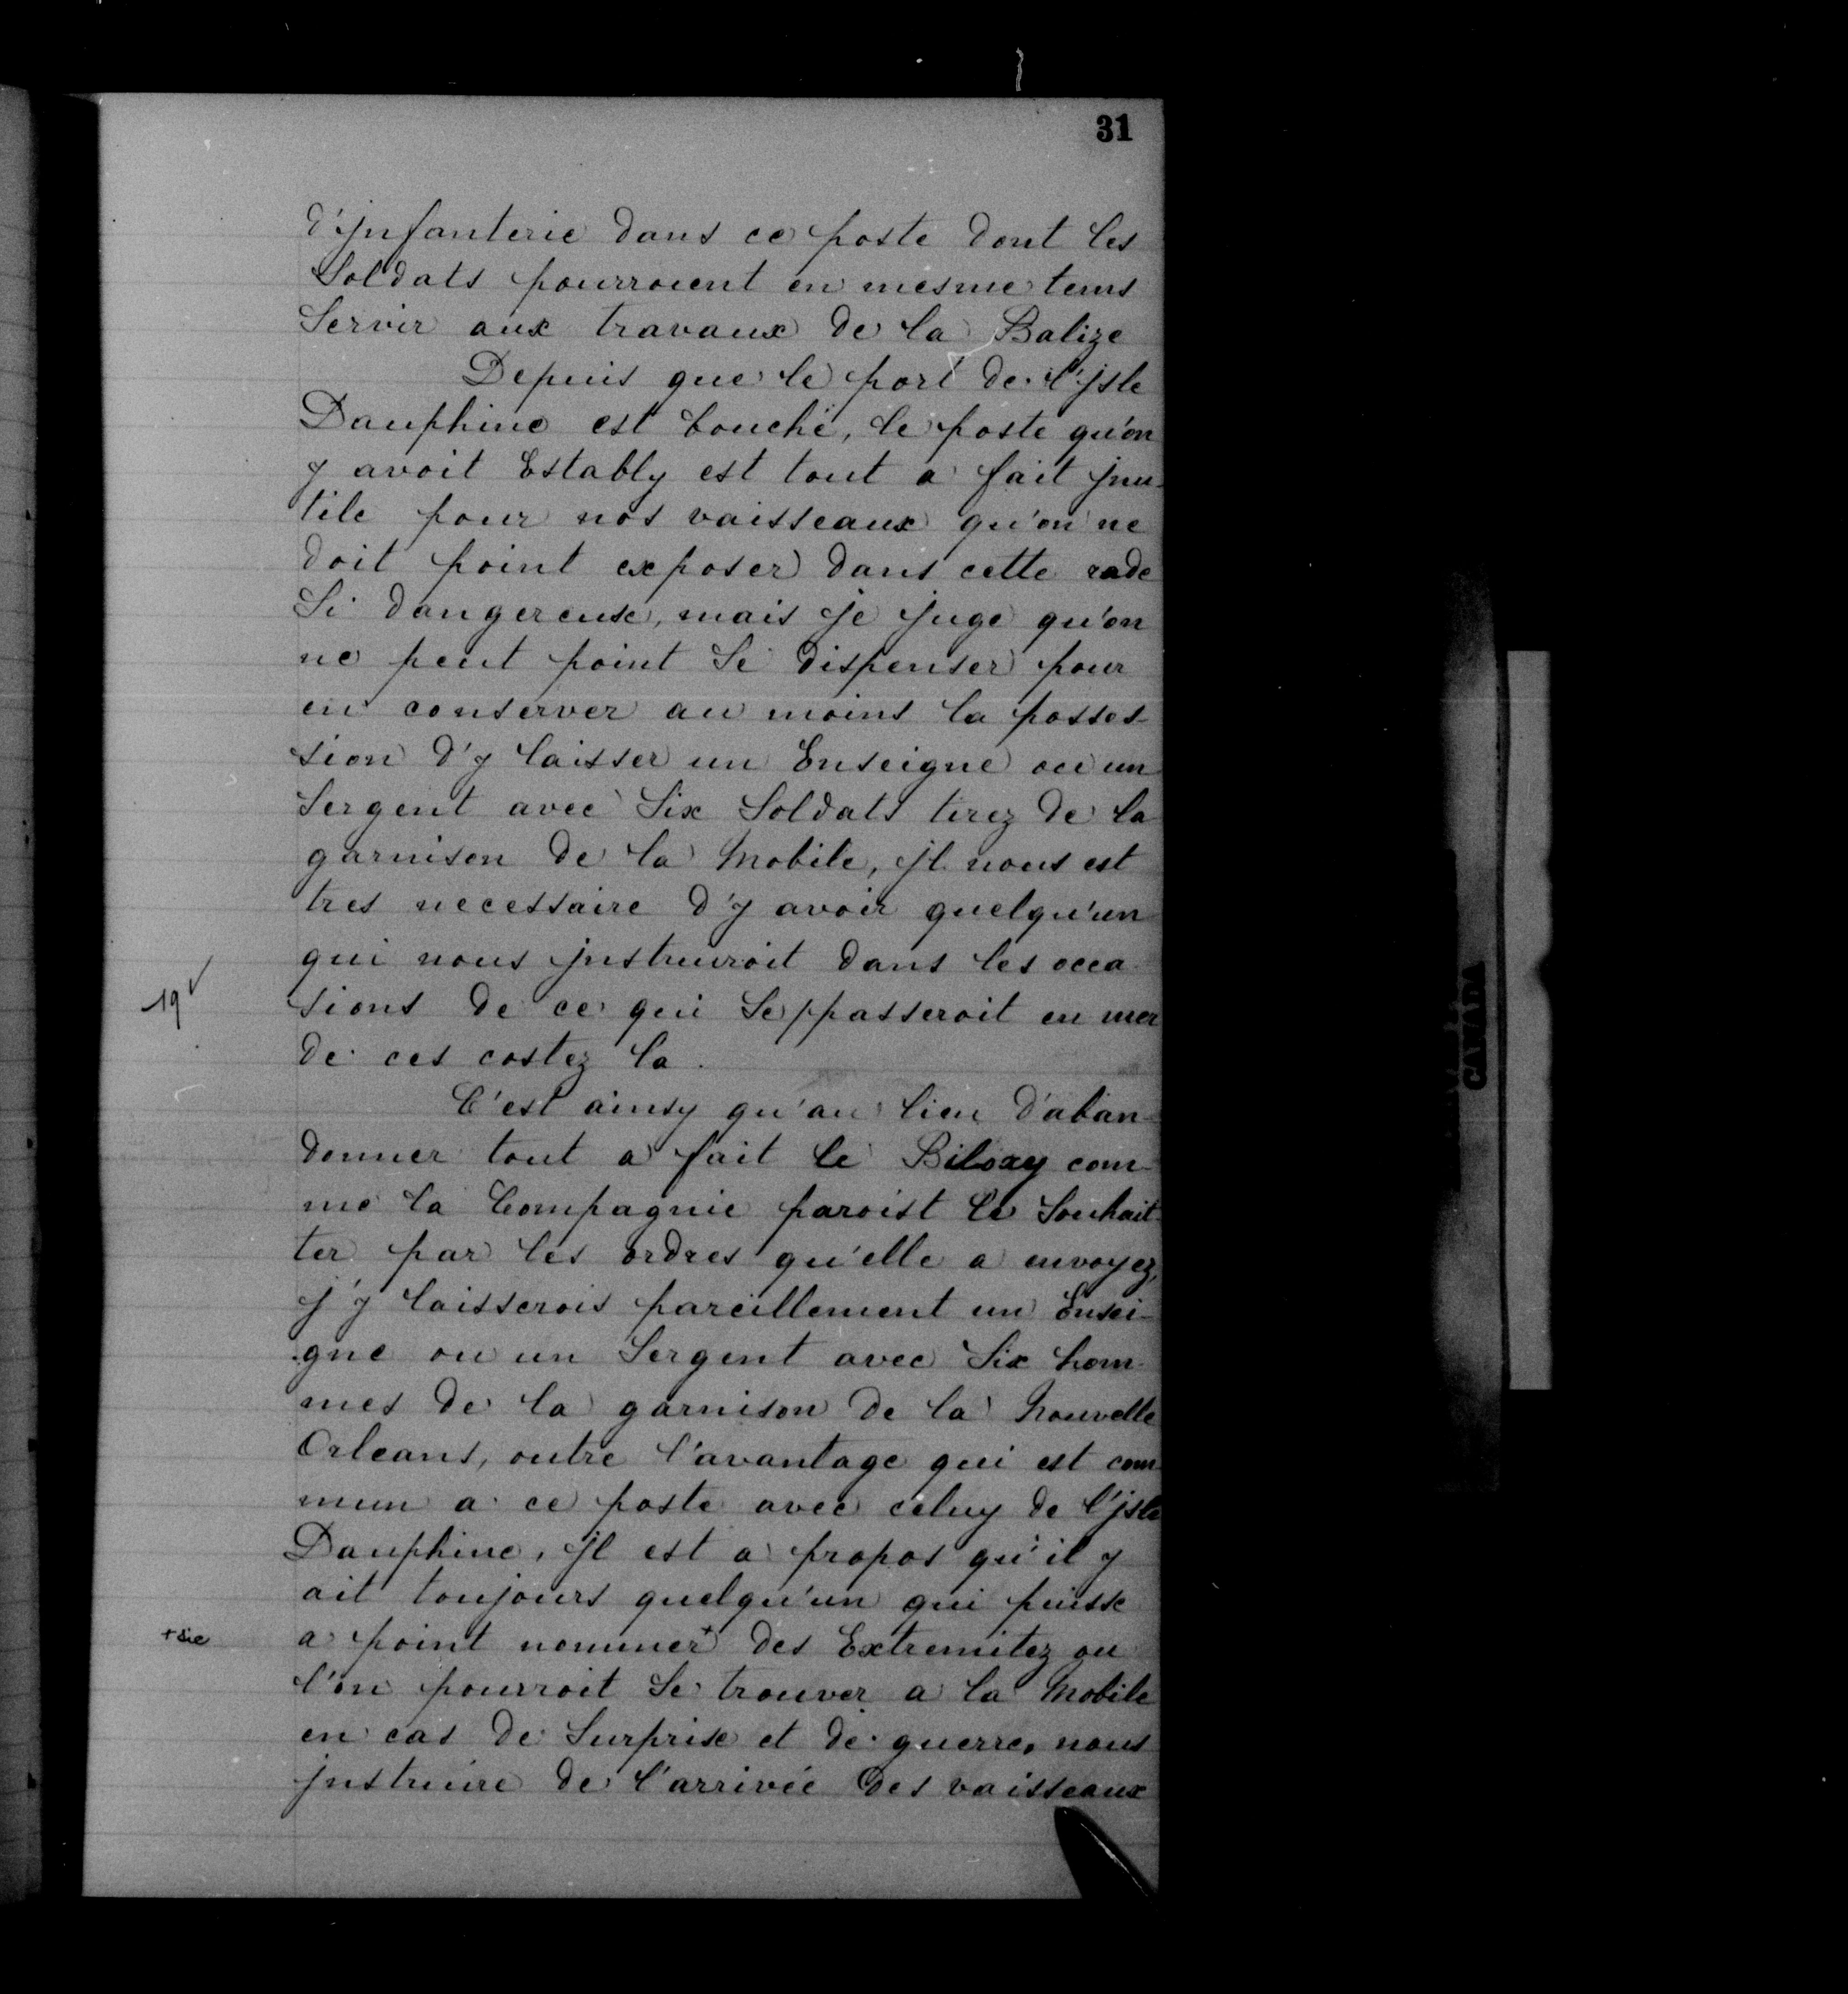 31
d'jnfanterie dans ce poste dont les
Soldats pourroient en mesme tems
Servir aux travaux de la Balize
Depuis que le port de l'jsle
Dauphine est bouché, le poste qu'on
y avoit Estably est tout a fait jnu-
tile pour nos vaisseaux qu'on ne
doit point exposer dans cette rade
Si dangereuse, mais je juge qu'on
ne peut point Se dispenser pour
en conserver au moins la posses-
sion d'y laisser un Enseigne ou un
Sergent avec Six Soldats tirez de la
garnison de la Mobile, jl nous est
tres necessaire d'y avoir quelqu'un
qui nous jnstruiroit dans les occa-
19v
sions de ce qui Se passeroit en mer
de ces costez la.
C'est ainsy qu'au lieu d'aban-
donner tout a fait le Biloxy com-
me la Compagnie paroist le Souhait-
ter par les ordres qu'elle a envoyez,
j'y laisserois pareillement un Ensei-
gne ou un Sergent avec Six hom-
mes de la garnison de la Nouvelle
Orleans, outre l'avantage qui est com
mun a ce poste avec celuy de l'jsle
Dauphine, jl est a propos qu'il y
ait toujours quelqu'un qui puisse
+ sic
a point nommer+ des Extremitez ou
l'on pourroit Se trouver a la Mobile
en cas de Surprise et de guerre, nous
jnstruire de l'arrivée des vaisseaux